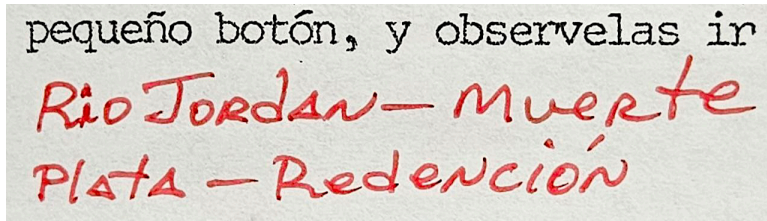 pequeño botón, y observelas ir
Rio Jordan — Muerte
Plata — Redención